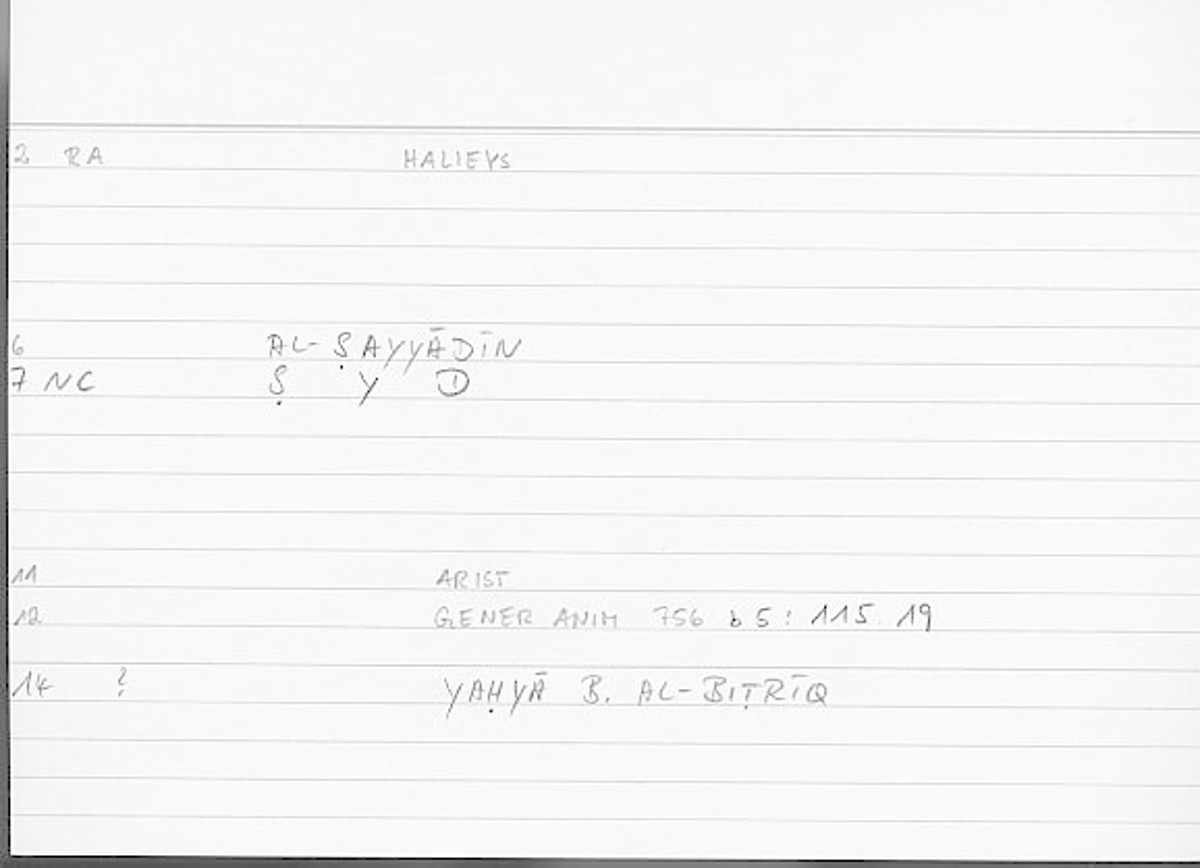 2 RA HALIEYS
6 AL-ṢAYYĀDĪN
7 NC Ṣ Y D
11 ARIST
12 GENER ANIM 756 b 5: 115. 19
14 ? YAḤYĀ B. AL-BIṬRĪQ